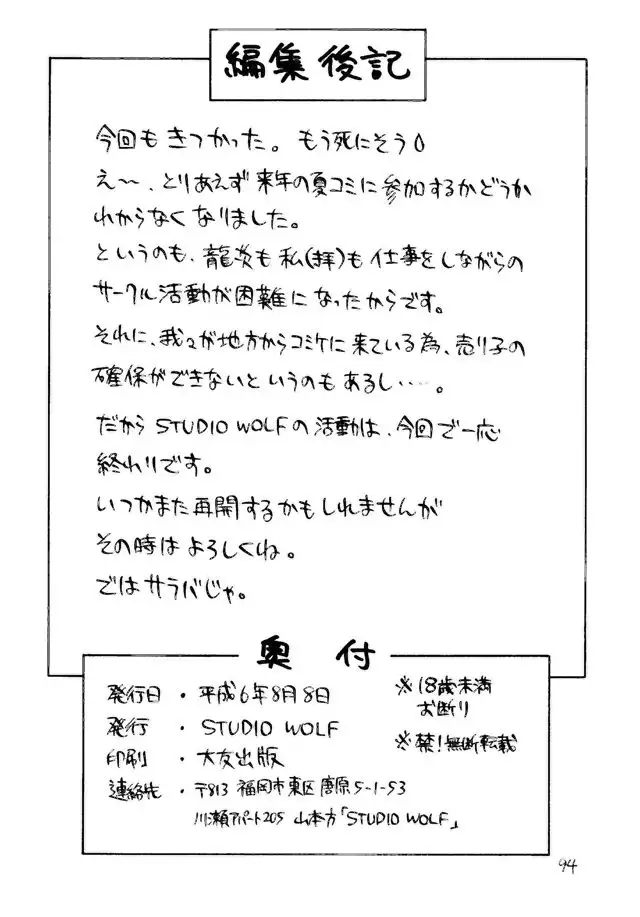 編集後記
今回もきつかった。もう死にそう
え〜、とりあえず来年の夏コミに参加するかどうか
わからなくなりました。
というのも、龍炎も私(拝)も仕事をしながらの
サークル活動が困難になったからです。
それに、我々が地方からコミケに来ている為、売り子の
確保ができないというのもあるし‥‥。
だから STUDIO WOLFの活動は、今回で一応
終わりです。
いつかまた再開するかもしれませんが
その時はよろしくね。
ではサラバじゃ。
奥付
発行日・平成6年8月8日
発行・STUDIO WOLF
印刷・大友出版
連絡先・〒813 福岡市東区唐原5-1-53
川瀬アパート205 山本方「STUDIO WOLF」
※18歳未満
お断り
※禁!無断転載
94